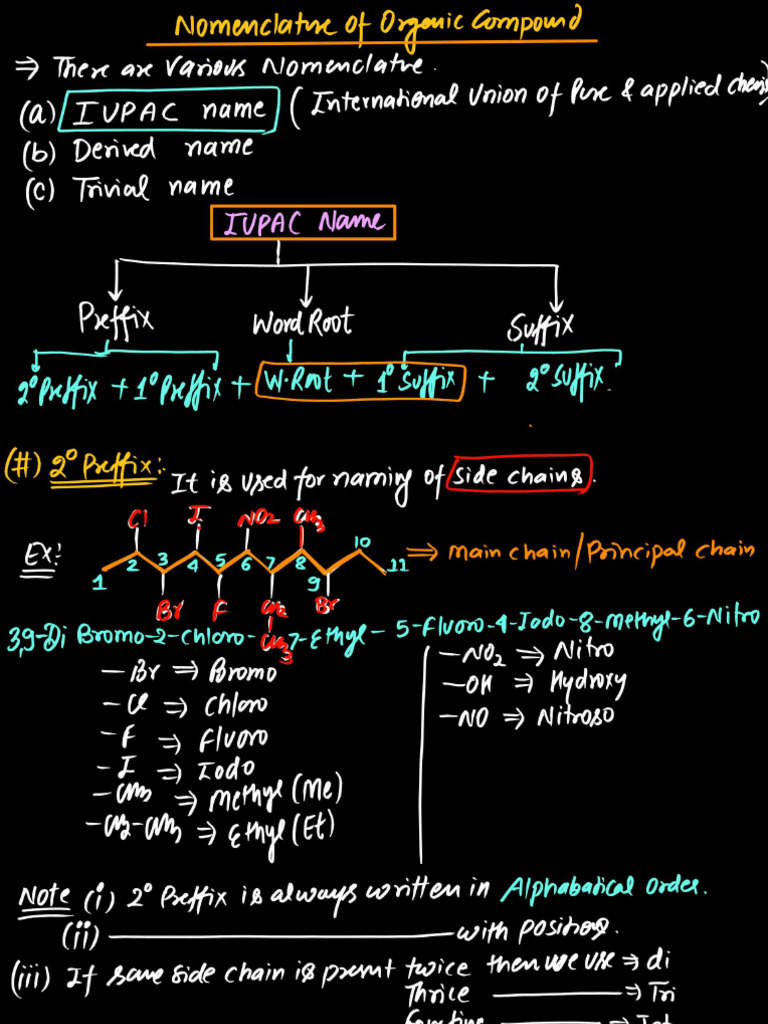 Nomenclature of Organic Compound
⇒ There are Various Nomenclature.
(a) IUPAC name (International Union of Pure & applied
(b) Derived name
(c) Trivial name
IUPAC Name
Preffix Word Root Suffix
2° Preffix + 1° Preffix + W.Root + 1° Suffix + 2° Suffix.
(#) 2° Preffix:- It is used for naming of side chains.
Cl I NO2 CH3
Ex: 1 2 3 4 5 6 7 8 9 10 11 ⇒ main chain/Principal chain
Br F CH2 Br
CH3
3,9-Di Bromo-2-Chloro-7-Ethyl-5-Fluoro-4-Iodo-8-Methyl-6-Nitro
-Br ⇒ Bromo
-Cl ⇒ Chloro
-F ⇒ Fluoro
-I ⇒ Iodo
-CH3 ⇒ Methyl (Me)
-CH2-CH3 ⇒ Ethyl (Et)
-NO2 ⇒ Nitro
-OH ⇒ Hydroxy
-NO ⇒ Nitroso
Note (i) 2° Preffix is always written in Alphabatical Order.
(ii) with positions.
(iii) If same side chain is present twice then we use ⇒ di
Thrice ⇒ Tri